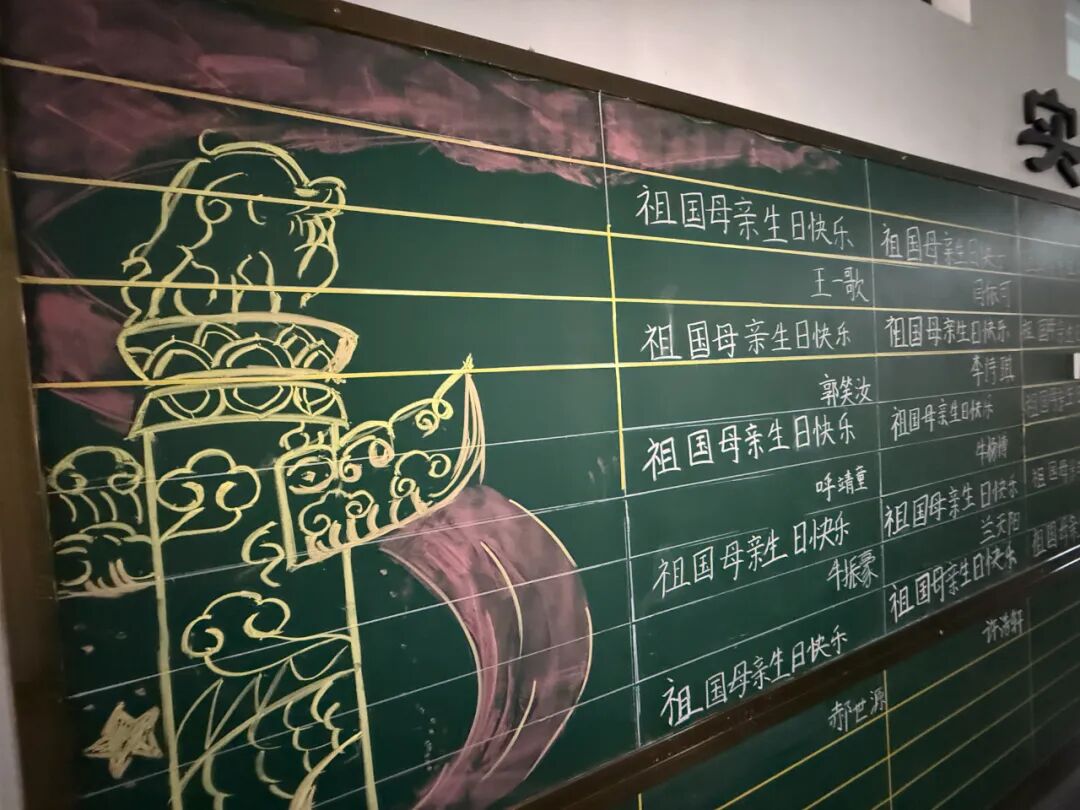 实
祖国母亲生日快乐
王一歌
祖国母亲生日快乐
郭笑汝
祖国母亲生日快乐
呼靖童
祖国母亲生日快乐
牛振豪
祖国母亲生日快乐
郝世源
祖国母亲生日快
祖国母亲生日快乐
李诗琪
祖国母亲生日快乐
祖国母亲生日快乐
兰天阳
祖国母亲生日快乐
祖国母亲
祖国母亲
祖国母
祖国母亲